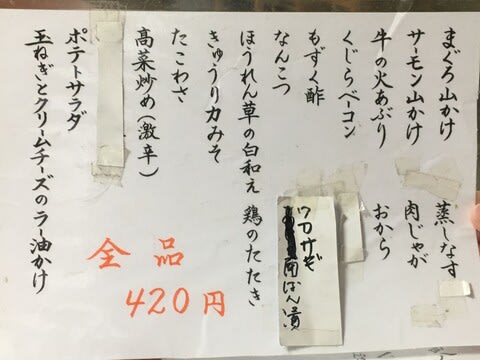 まぐろ山かけ
サーモン山かけ
牛の火あぶり
くじらベーコン
もずく酢
なんこつ
ほうれん草の白和え
きゅうり力みそ
たこわさ
高菜炒め(激辛)
ポテトサラダ
玉ねぎとクリームチーズのラー油かけ
蒸しなす
肉じゃが
おから
南ばん漬
鶏のたたき
全品
420円